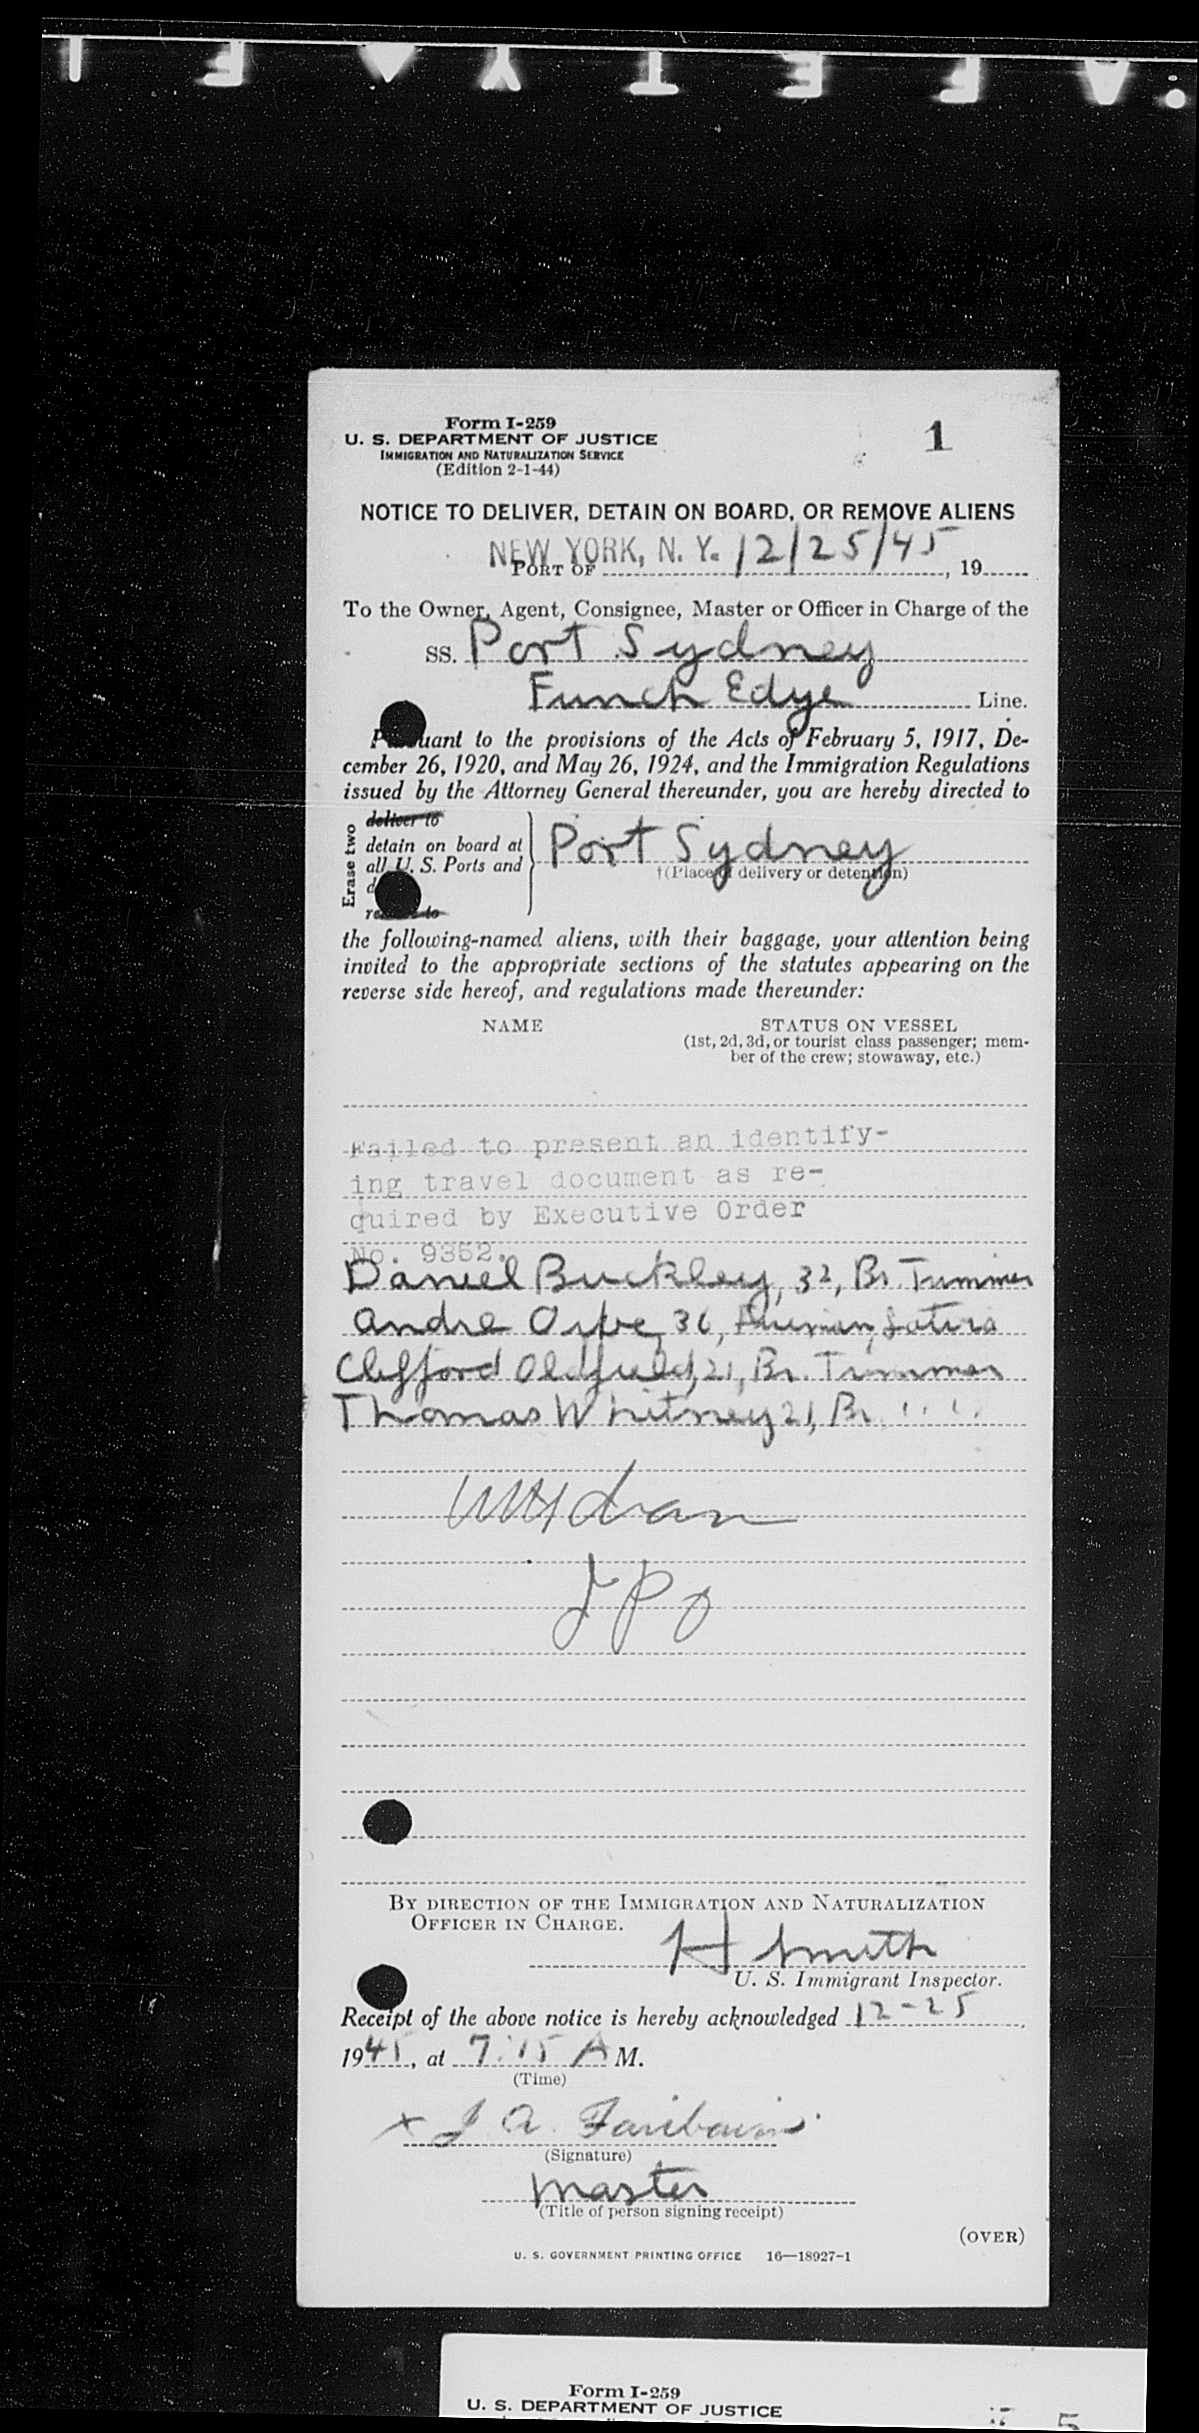 Form I-259
U. S. DEPARTMENT OF JUSTICE
IMMIGRATION AND NATURALIZATION SERVICE
(Edition 2-1-44)
1
NOTICE TO DELIVER, DETAIN ON BOARD, OR REMOVE ALIENS
NEW YORK, N. Y. 12/25/45
PORT OF , 19
To the Owner, Agent, Consignee, Master or Officer in Charge of the
SS. Port Sydney
Funch Edye Line.
uant to the provisions of the Acts of February 5, 1917, De-
cember 26, 1920, and May 26, 1924, and the Immigration Regulations
issued by the Attorney General thereunder, you are hereby directed to
Erase two
deliver to
detain on board at
all U. S. Ports and
Port Sydney
†(Place of delivery or detention)
the following-named aliens, with their baggage, your attention being
invited to the appropriate sections of the statutes appearing on the
reverse side hereof, and regulations made thereunder:
NAME STATUS ON VESSEL
(1st, 2d, 3d, or tourist class passenger; mem-
ber of the crew; stowaway, etc.)
Failed to present an identify-
ing travel document as re-
quired by Executive Order
No. 9352.
Daniel Buckley, 32, Br. Trimmer
Andre 36,
Clifford Oldfield, 21, Br. Trimmer
Thomas Whitney 21, Br. " "
BY DIRECTION OF THE IMMIGRATION AND NATURALIZATION
OFFICER IN CHARGE.
H Smith
U. S. Immigrant Inspector.
Receipt of the above notice is hereby acknowledged 12-25
1945, at 7:15 A M.
(Time)
x J. A. Fairbairn
(Signature)
Master
(Title of person signing receipt)
(OVER)
U. S. GOVERNMENT PRINTING OFFICE 16—18927-1
Form I-259
U. S. DEPARTMENT OF JUSTICE